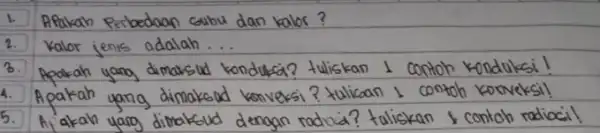 1. Apakah Perbedaan suhu dan kalor?
2. Kalor jenis adalah ...
3. Apakah yang dimaksud konduksi? tuliskan 1 contoh konduksi!
4. Apakah yang dimaksud konveksi? tuliskan 1 contoh konveksi!
5. Apakah yang dimaksud dengan radiasi? tuliskan 1 contoh radiasi!